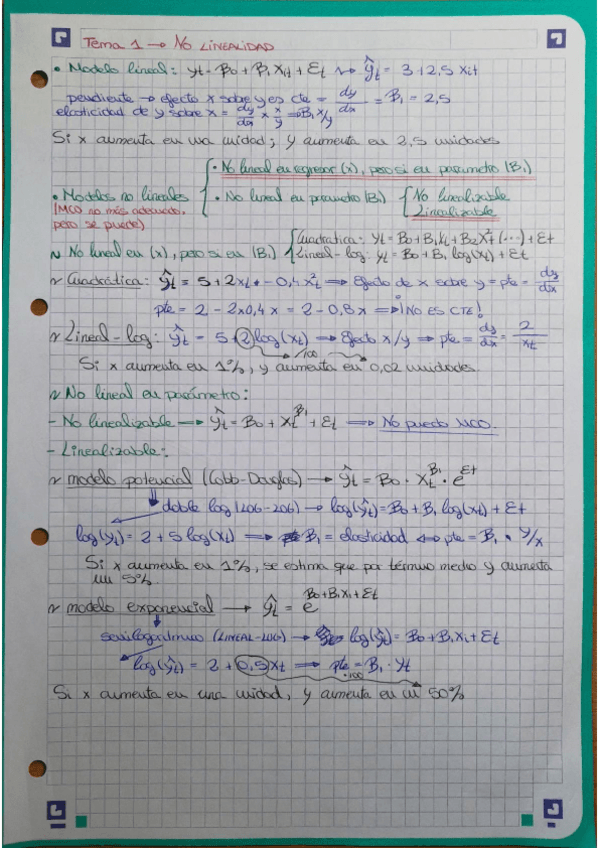 Tema 1 → No LINEALIDAD
• Modelo lineal: yt = B0 + B1 Xit + Et ↝ ŷt = 3 + 2,5 Xit
pendiente → efecto x sobre y es cte = dy/dx = B1 = 2,5
elasticidad de y sobre x = dy/dx × x/y → B1 x/y
Si x aumenta en una unidad; y aumenta en 2,5 unidades
• No lineal en regresor (x), pero si en parametro (B1)
• Modelos no lineales • No lineal en parametro (B1) { No linealizable
(MCO no más adecuado, Linealizable
pero se puede)
~ No lineal en (x), pero si en (B1) { Cuadratica: yt = B0 + B1Xt + B2Xt² + (...) + Et
Lineal-log: yt = B0 + B1 log(xt) + Et
~ Cuadrática: ŷt = 5 + 2xt - 0,4xt² ⇒ Efecto de x sobre y = pte = dy/dx
pte = 2 - 2x0,4x = 2 - 0,8x ⇒ ¡NO ES CTE!
~ Lineal-log: ŷt = 5 + 2 log(xt) ⇒ Efecto x/y ⇒ pte = dy/dx = 2/xt
/100
Si x aumenta en 1%, y aumenta en 0,02 unidades
~ No lineal en parámetro:
- No linealizable → ŷt = B0 + Xt^B1 + Et ⇒ No puedo MCO.
- Linealizable:
~ modelo potencial (Cobb-Douglas) → ŷt = B0 · Xt^B1 · e^Et
doble log (LOG-LOG) → log(ŷt) = B0 + B1 log(xt) + Et
log(yt) = 2 + 5 log(xt) ⇒ B1 = elasticidad ⇔ pte = B1 · y/x
Si x aumenta en 1%, se estima que por término medio y aumenta
un 5%.
~ modelo exponencial → ŷt = e^B0+B1X1+Et
semilogaritmo (LINEAL-LOG) → log(ŷt) = B0 + B1X1 + Et
log(ŷt) = 2 + 0,5xt ⇒ pte = B1 · yt
·100
Si x aumenta en una unidad, y aumenta en un 50%